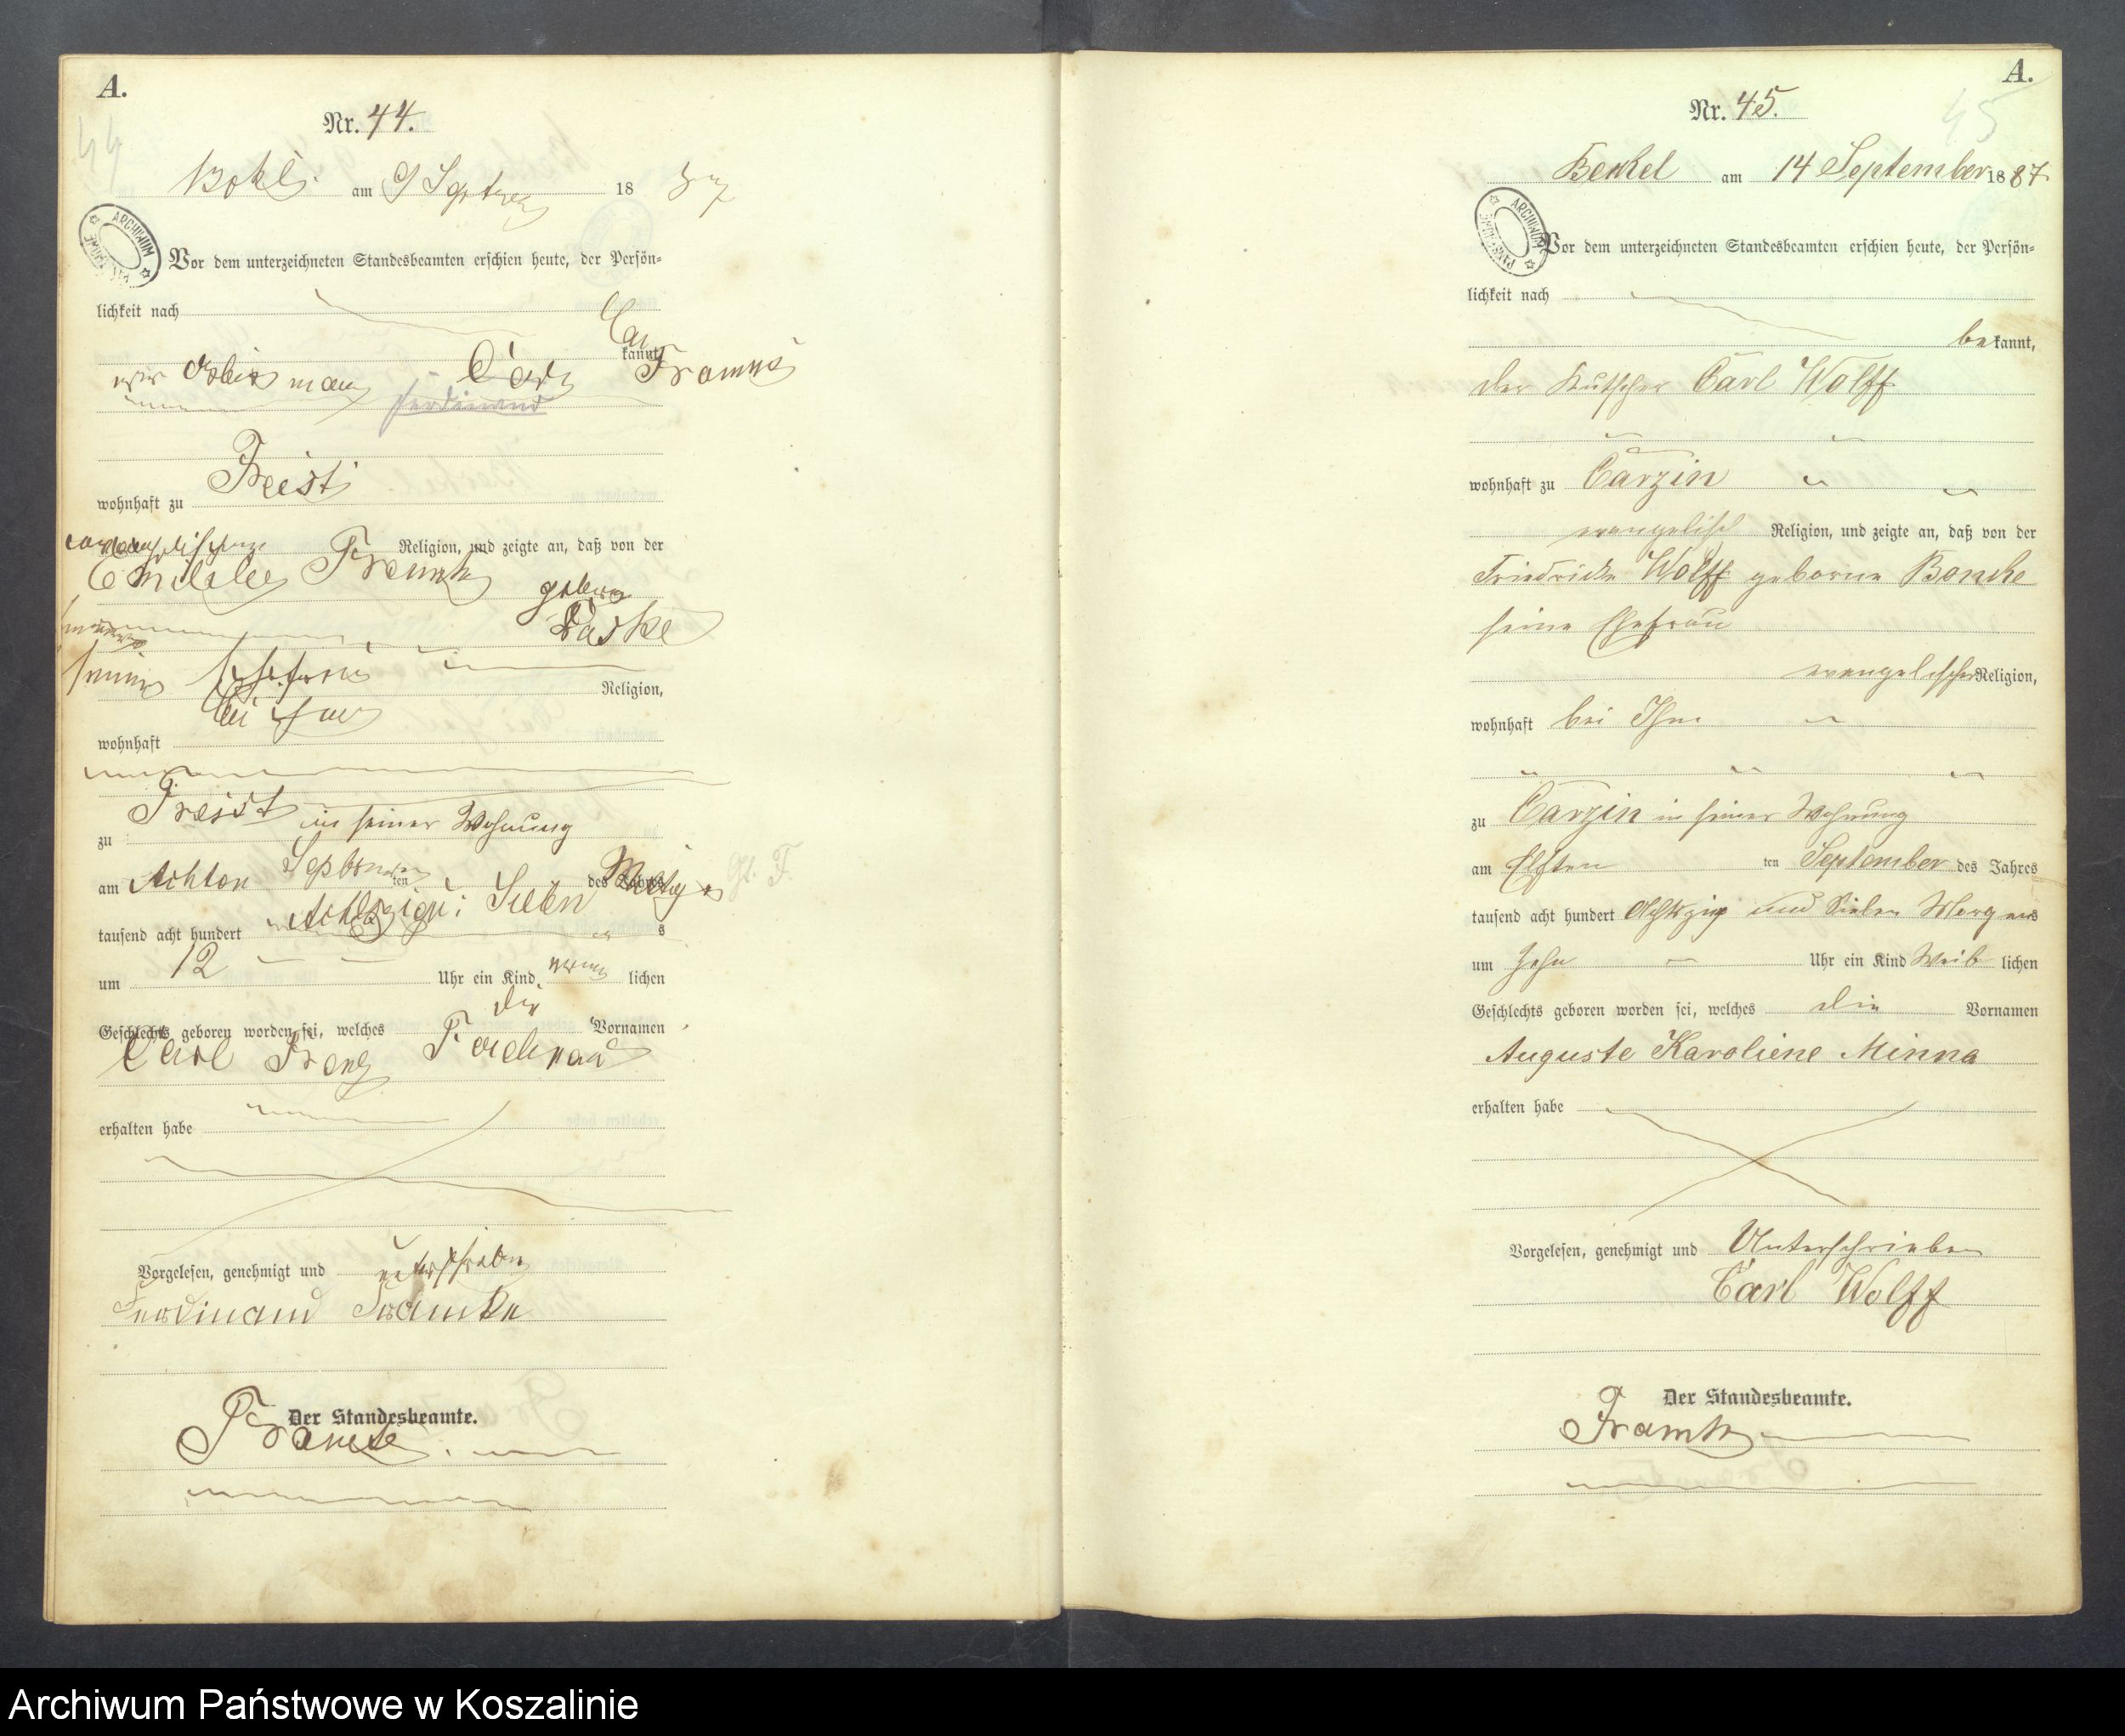 A.
Nr. 44.
44
am 9 September 18 87
ARCHIWUM PAŃSTWOWE
Vor dem unterzeichneten Standesbeamten erschien heute, der Persön-
lichkeit nach
kannt,
Carl
Ferdinand
Freist
wohnhaft zu
Religion, und zeigte an, daß von der
Emilie
Paske
seiner Ehefrau
Religion,
wohnhaft
Freist in seiner Wohnung
zu
am Achten September ten des Jahres
tausend acht hundert Achtzig Sieben
um 12 Uhr ein Kind lichen
die
Geschlechts geboren worden sei, welches Vornamen
Carl Franz Ferdinand
erhalten habe
Vorgelesen, genehmigt und unterschrieben
Ferdinand Framke
Der Standesbeamte.
Framke
A.
Nr. 45.
45
Beckel am 14 September 1887
ARCHIWUM PAŃSTWOWE
Vor dem unterzeichneten Standesbeamten erschien heute, der Persön-
lichkeit nach
bekannt,
der Kutscher Carl Wolff
wohnhaft zu Carzin
evangelisch Religion, und zeigte an, daß von der
Friedricke Wolff geborne
seine Ehefrau
evangelischer Religion,
wohnhaft bei Ihm
zu Carzin in seiner Wohnung
am Elften ten September des Jahres
tausend acht hundert Achtzig und Sieben Morgens
um Zehn Uhr ein Kind Weib lichen
Geschlechts geboren worden sei, welches die Vornamen
Auguste Karoliene Minna
erhalten habe
Vorgelesen, genehmigt und Unterschrieben
Carl Wolff
Der Standesbeamte.
Framke
Archiwum Państwowe w Koszalinie